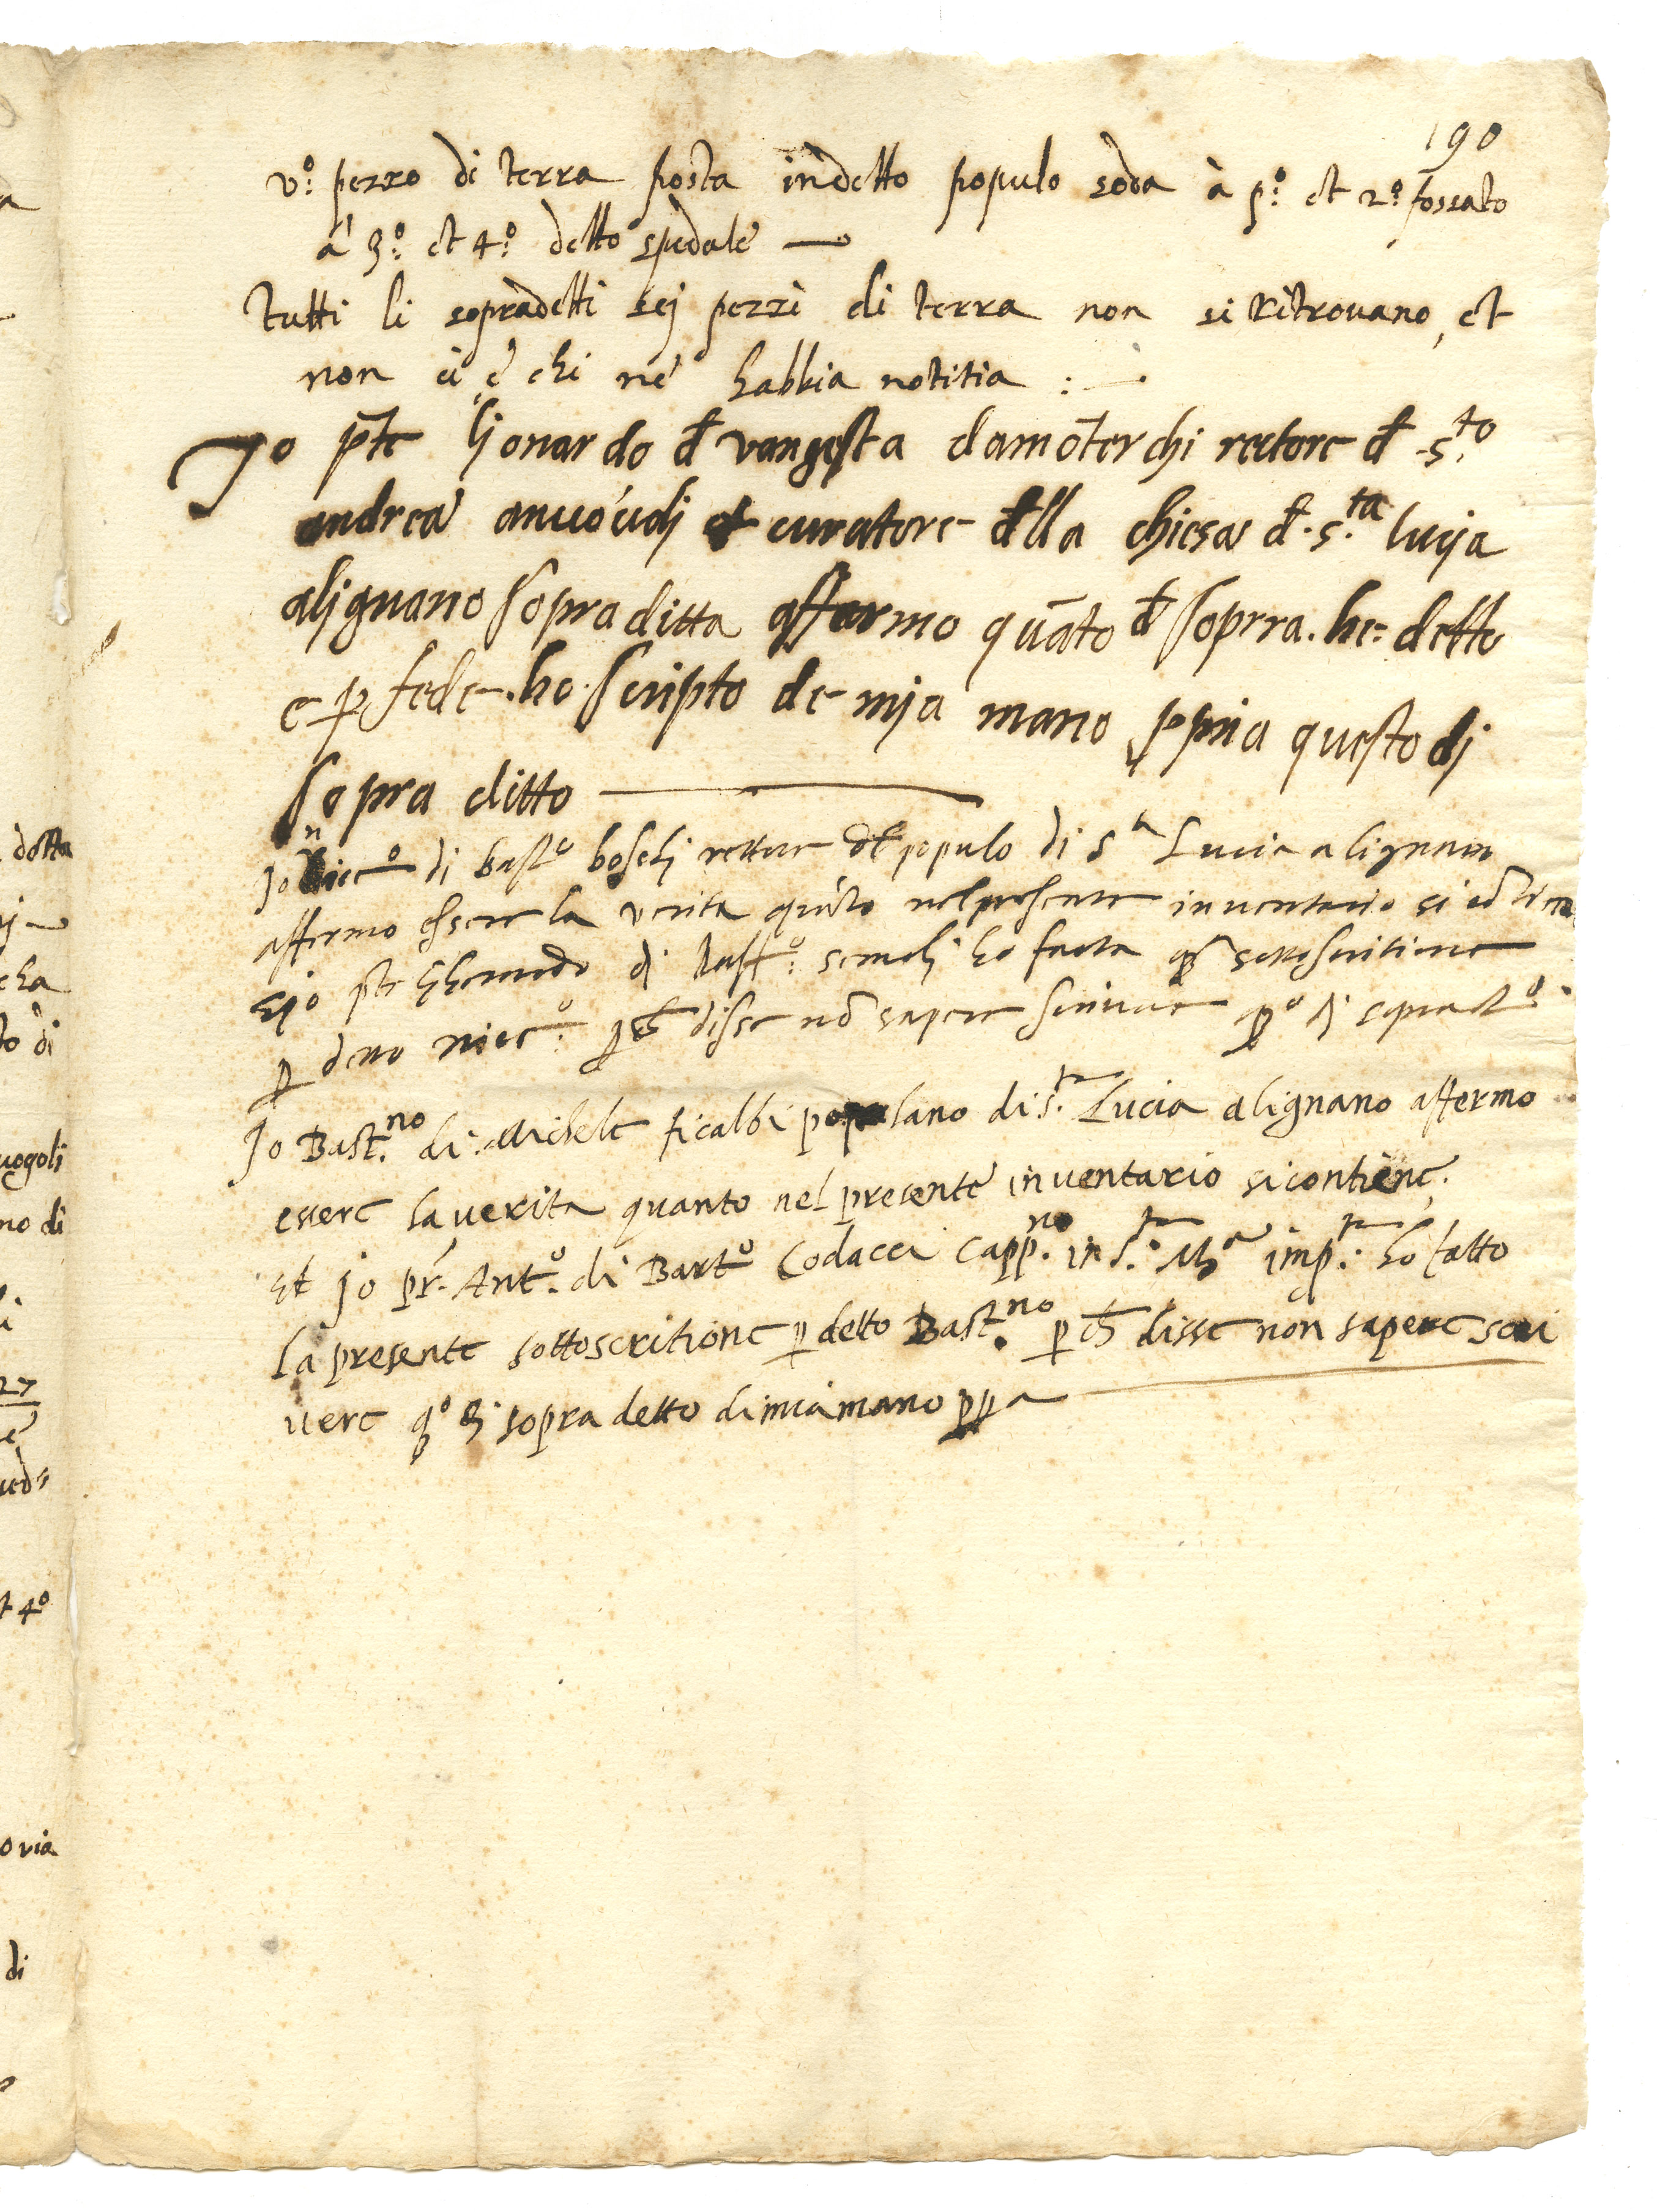 190
v.º pezzo di terra posta in detto populo soda à p.º et 2.º fossato
à 3.º et 4.º detto spedale
tutti li sopradetti sej pezzi di terra non si ritrovano, et
non ci è chi né habbia notitia :
Jo pte ljonardo d vangesta damōterchi rectore d s.to
andrea et curatore della chiesa d. s.ta lucja
aljgnano sopra ditta affermo quāto d soprra. he detto
e p fede. ho scripto de mja mano ppria questo dj
sopra ditto
Jo nicc.º di bast.º rettore del populo di s.ta Lucia alignano
affermo essere la verita quāto nel presente inventario si
pte di ho facta sottoscritione
p detto nicc.º p ch disse nō sapere scrivere
Jo Bast.no di Michele ficalbi populano di s.ta Lucia alignano affermo
essere la verita quanto nel presente inventario si contiene.
Et jo pr. Ant.º di Bart.º Codacci Capp.no in s.ta Mª imp.ta ho fatto
la presente sottoscritione p detto Bast.no p ch disse non sapere scri
vere qº dì sopra detto di mia mano ppa
dotta
cha
to di
uogoli
no di
27
t 4º
o via
di